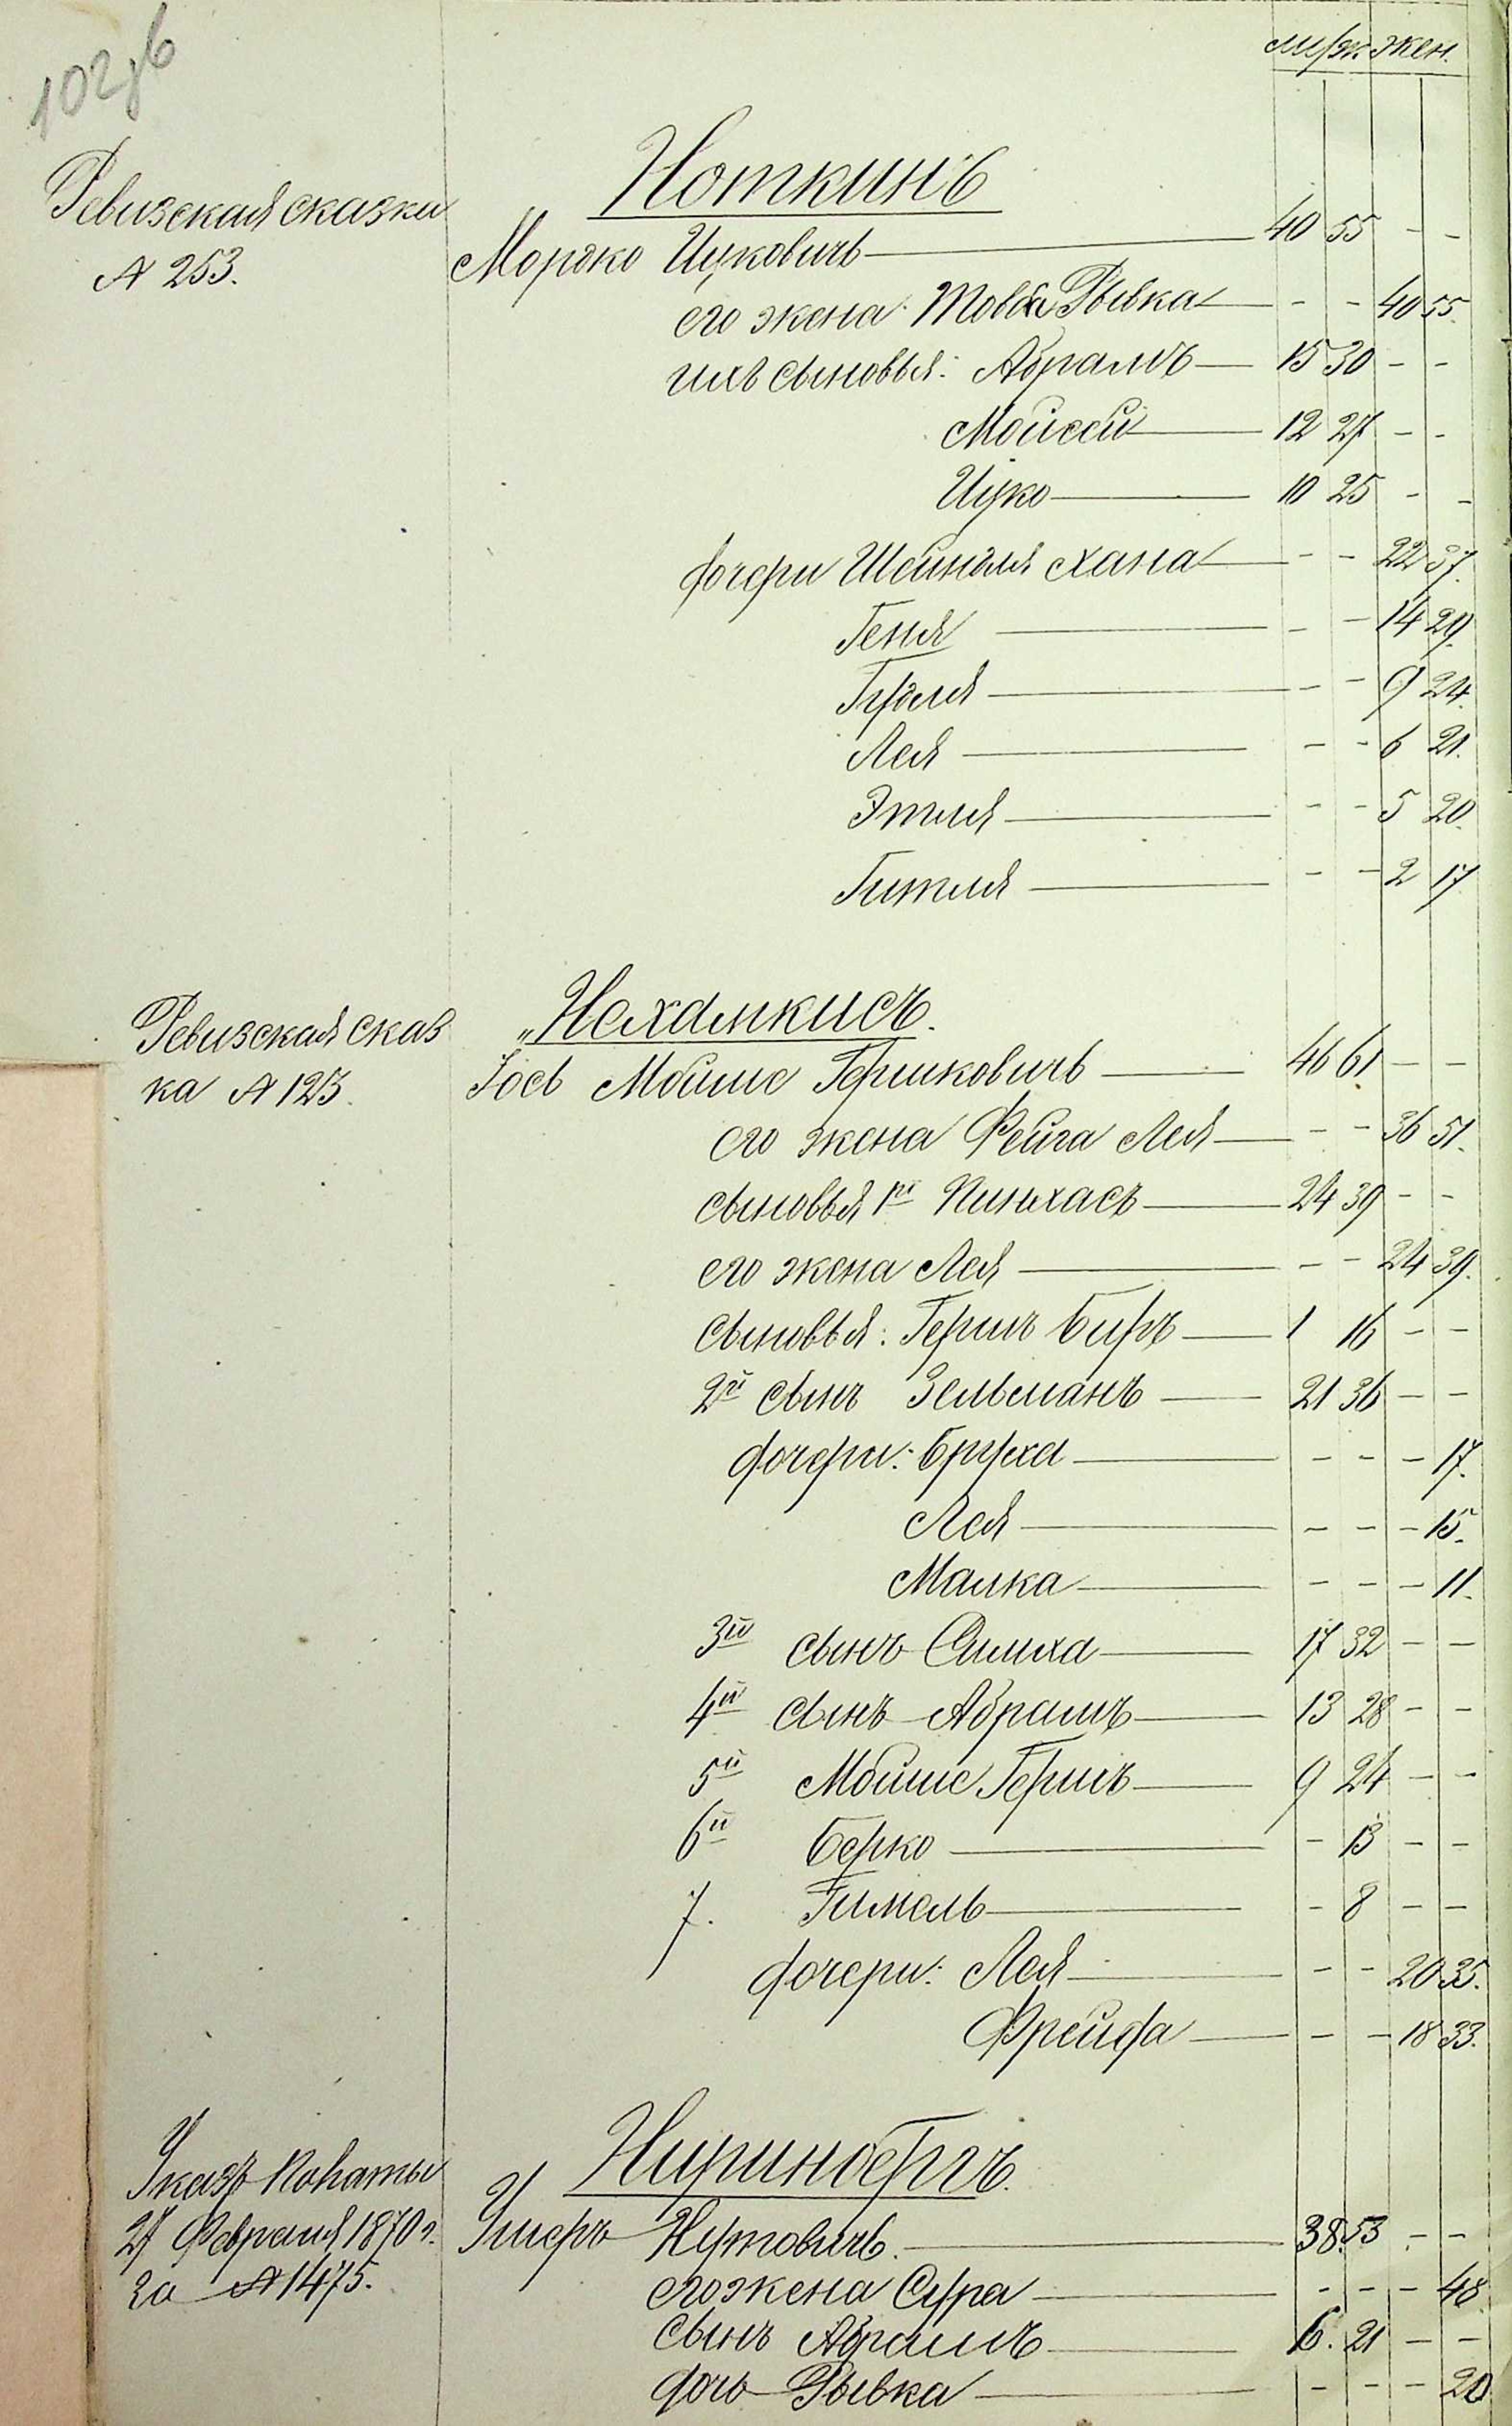 102 об
муж. жен.
Ноткинъ
Ревизская сказка
№ 253.
Мордко Ицковичъ 40 55 - -
его жена Товба Рывка - - 40 55.
ихъ сыновья: Абрамъ 15 30 - -
Мойсей 12 27 - -
Ицко 10 25 - -
дочери Шейндля Хана - - 22 37.
Геня - - 14 29.
- - 9 24.
Лея - - 6 21.
Этля - - 5 20.
Гитля - - 2 17
„Нахамкисъ.
Ревизская сказ
ка № 123.
Іось Мойше Гершковичъ 46 61 - -
его жена Фейга Лея - - 36 51.
сыновья 1й Пинхасъ 24 39 - -
его жена Лея - - 24 39.
сыновья: Гершъ Биръ 1 16 - -
2й сынъ Зельманъ 21 36 - -
дочери: Бруха - - - 17.
Лея - - - 15.
Малка - - - 11.
3й сынъ Симха 17 32 - -
4й сынъ Абрамъ 13 28 - -
5й Мойше Гершъ 9 24 - -
6й Берко - 13 - -
7. Гимель - 8 - -
дочери: Лея - - 20 35.
Фрейда - - 18 33.
Ниринбергъ.
Указъ Палаты
27 Февраля 1870 г.
за № 1475.
Ушеръ Нутовичъ. 38. 53 - -
его жена Сура - - - 48
сынъ Абрамъ 6. 21 - -
дочь Рывка - - - 20